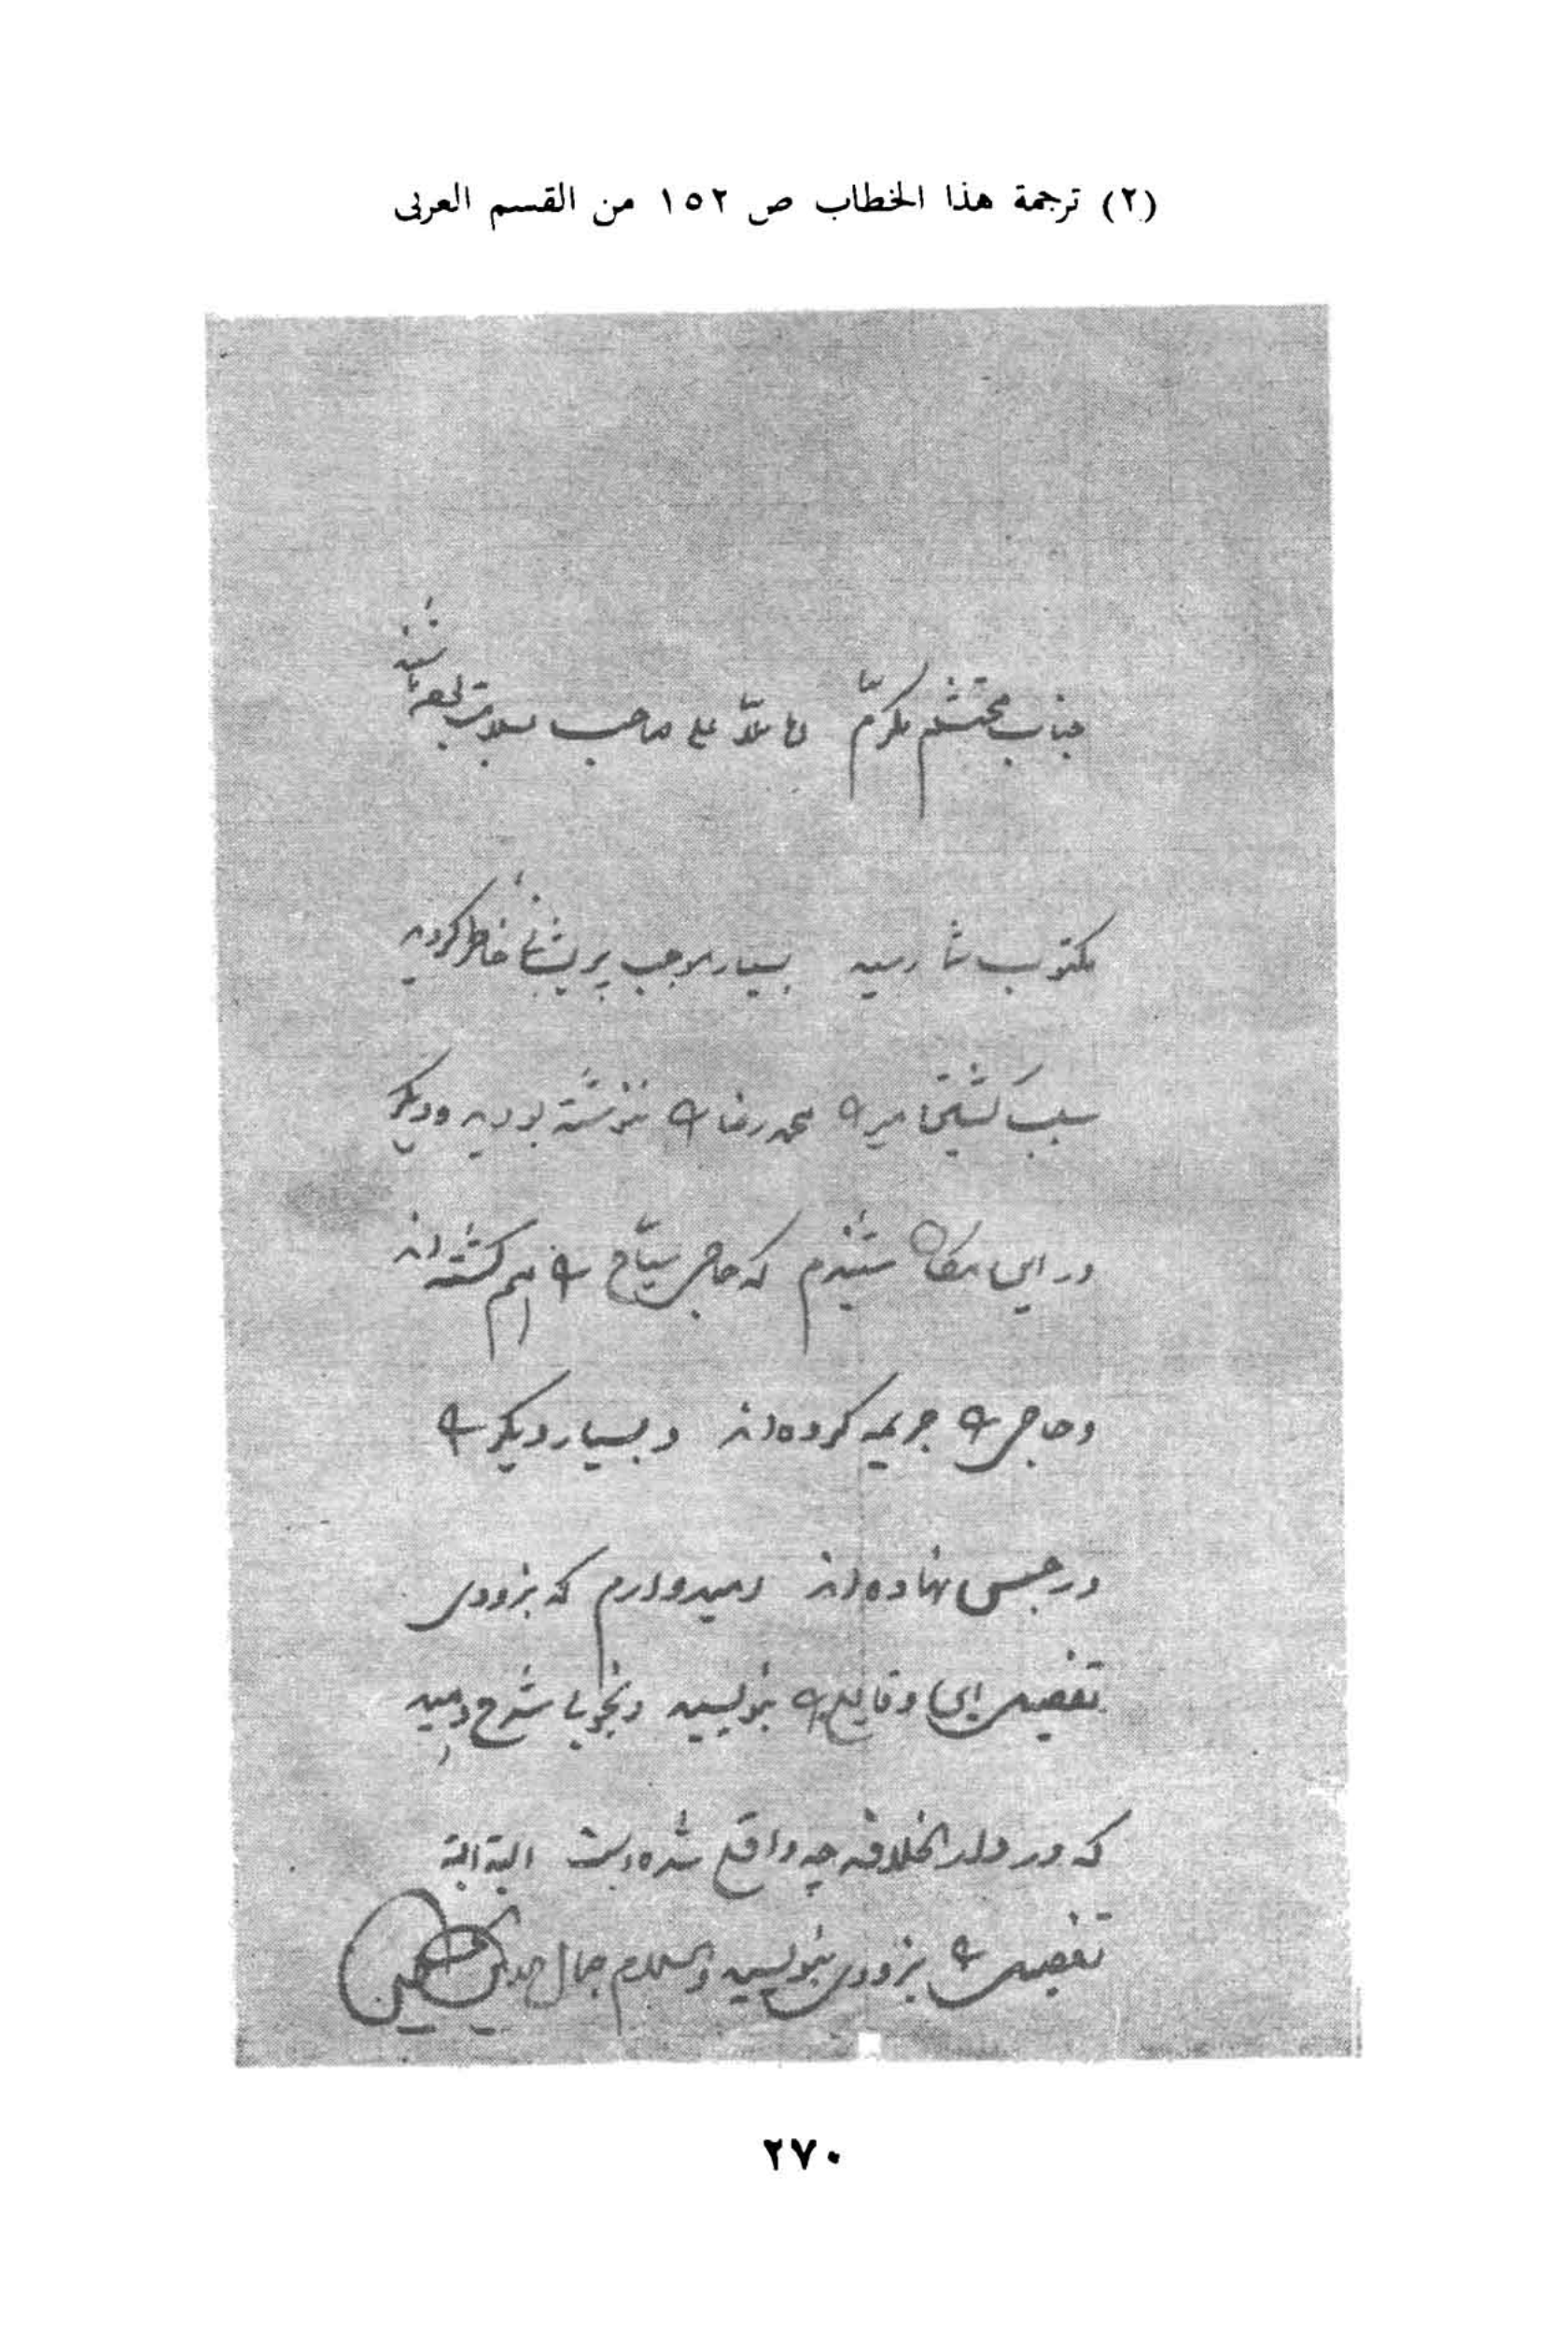 (٢) ترجمة هذا الخطاب ص ١٥٢ من القسم العربى
جناب محتشم مكرّم ملّا على صاحب بسلامت باشند
مكتوب شما رسيد بسيار موجب پريشانى خاطر گرديد
سبب كشتن ميرزا محمد رضا را ننوشته بوديد وديگر
در اين مكان شنيدم كه حاجى سيّاح را هم كشته اند
وحاجى را جريمه كرده اند و بسيار ديگر را
در حبس نهاده اند اميدوارم كه بزودى
تفصيل اين وقايع را بنويسيد وبخوبى شرح دهيد
كه در دار الخلافه چه واقع شده است البته البته
تفصيل را بزودى بنويسيد والسلام جمال الدين الحسينى
٢٧٠